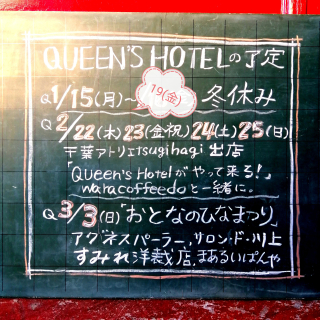 QUEEN'S HOTELの予定
Q 1/15(月)〜19(金) 冬休み
Q 2/22(木)23(金祝)24(土)25(日)
千葉アトリエtsugihagi 出店
「Queen's Hotelがやって来る!」
waracoffeedoと一緒に。
Q 3/3(日)「おとなのひなまつり」
アグネスパーラー,サロン・ド・川上
すみれ洋裁店,まあるいぱんや